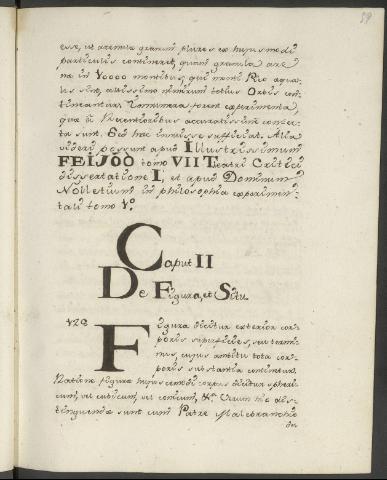 esse, ut arenulæ granum plures ex hujusmodi
particulis contineret, quàm granula are
næ in Voooo montibus, qui monti Rio æqua-
les sint, altissimo nimirum totius Orbis con-
tineantur. Innumera forent experimenta,
quæ à Recentioribus accuratissimè
tata sunt. Sed hæc innuisse sufficiat. Alia
videri possunt apud Illustrissimum
FEIJOO tomo VII Teatri Critici
dissertatione I, et apud Dominum
Nolletium in philosophia experimen-
tali tomo Vº
Caput II
De Figura, et Situ.
128 Figura dicitur exterior cor-
poris superficies, seu termi-
nus, cujus ambitu tota cor-
poris substantia continetur.
Ratione figuræ hujuscemodi corpus dicitur spheri-
cum, vel cubicum, vel conicum, &c. Verum hic dis-
tinguendæ sunt cum Patre Malebranchio